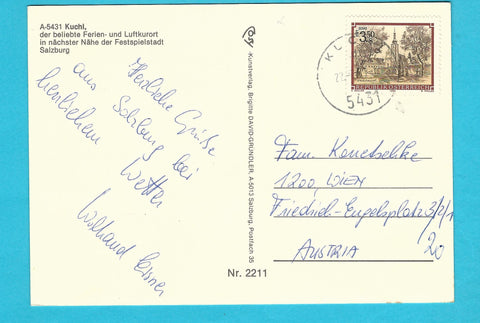 A-5431 Kuchl,
der beliebte Ferien- und Luftkurort
in nächster Nähe der Festspielstadt
Salzburg
Herzliche Grüße
aus Salzburg bei
herrlichem Wetter
Kunstverlag, Brigitte DAVID-GRUNDLER, A-5013 Salzburg, Postfach 35
Nr. 2211
3,50
REPUBLIK ÖSTERREICH
KUCHL
5431
Fam.
1200, WIEN
Friedrich-Engelsplatz 3/2/1
20
AUSTRIA